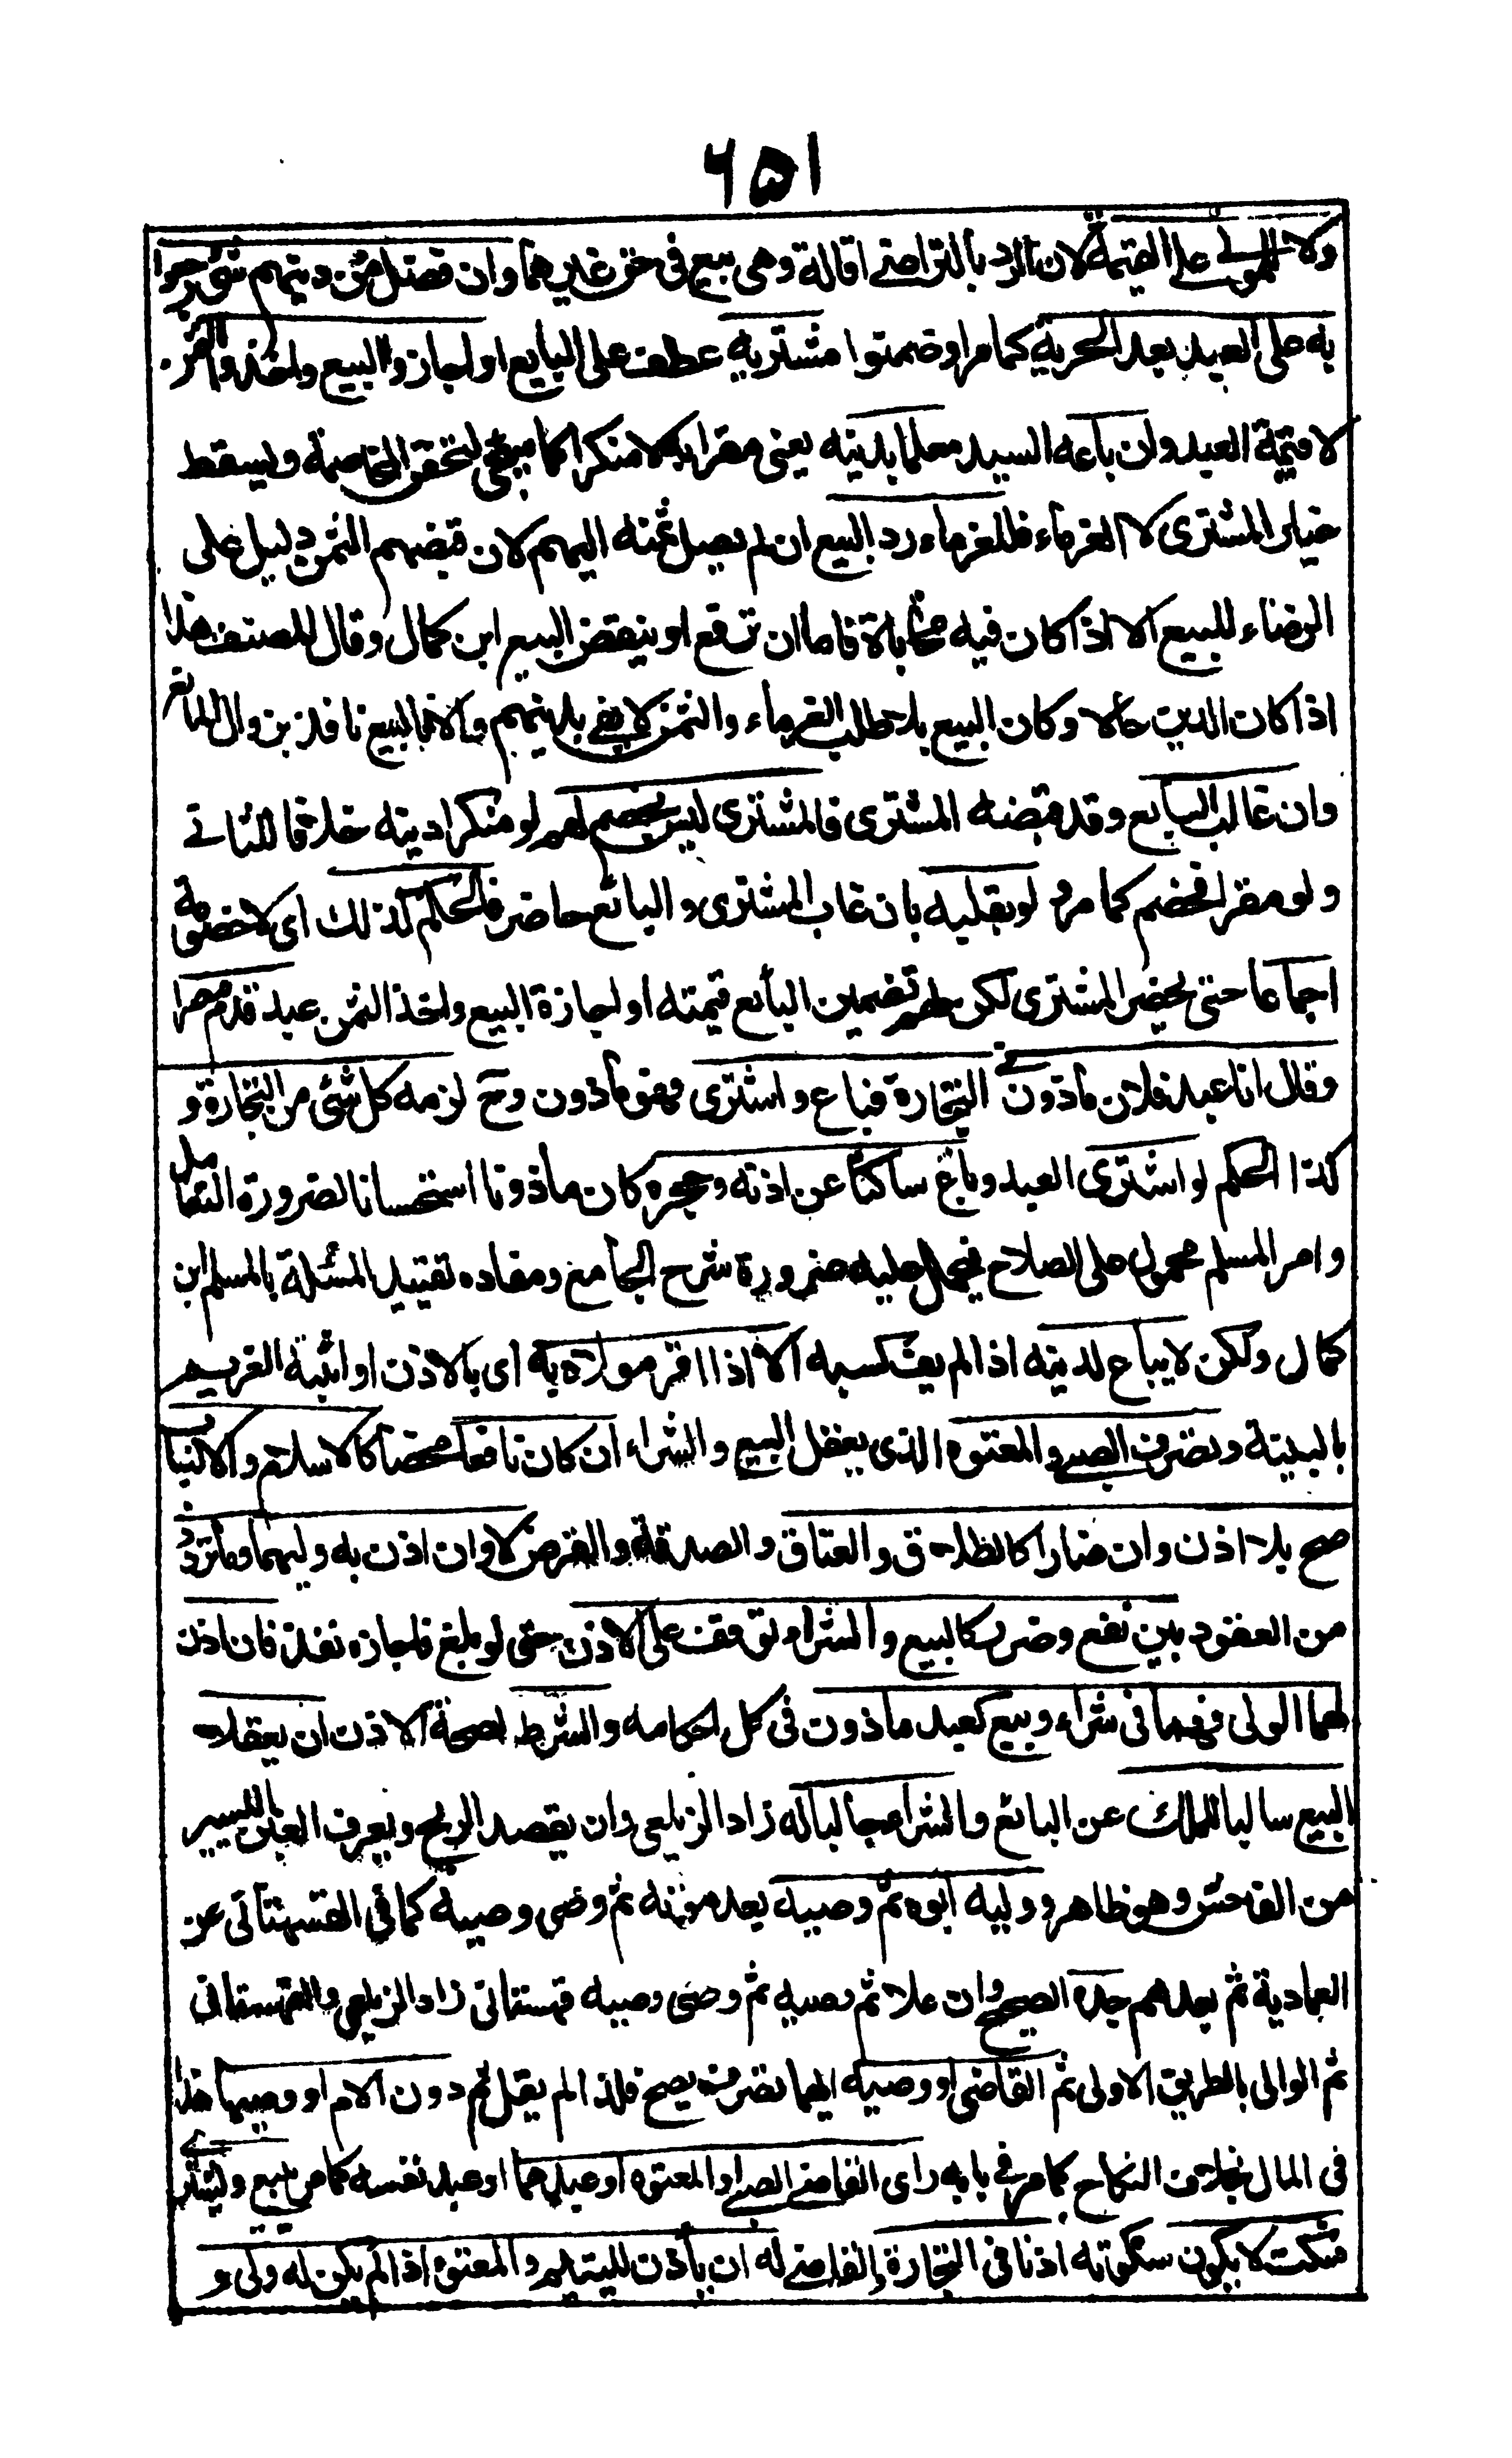 ٦٥١
ولا للمولى على القيمة لان الرد بالتراضى اقالة وهى بيع فى حق غيرهما وان فضل من دينهم شئ رجعوا
به على العبد بعد الحرية كما مر او ضمنوا مشتريه عطف على البايع او اجازوا البيع واخذوا الثمن
لا قيمة العبد وان باعه السيد معلما بدينه يعنى مقرا به لا منكرا كما سيجئ لتحقق المخاصمة ويسقط
خيار المشترى لا الغرماء فللغرماء رد البيع ان لم يصل ثمنه اليهم لان قبضهم الثمن دليل على
الرضاء للبيع الا اذا كان فيه محاباة فاما ان ترفع او ينقض البيع ابن كمال وقال المصنف هذا
اذا كان الدين حالا وكان البيع بلا طلب الغرماء والثمن لا يفى بدينهم والا فالبيع نافذ بزوال المانع
وان غاب البايع وقد قبضه المشترى فالمشترى ليس بخصم لهم لو منكرا دينه خلافا للثانى
ولو مقرا فخصم كما مر ولو بقلبه بان غاب المشترى والبائع حاضر فالحكم كذلك اى لا خصومة
اجماعا حتى يحضر المشترى لكن لهم تضمين البائع قيمته او اجازة البيع واخذ الثمن عبد قدم مصرا
وقال انا عبد فلان ماذون فى التجارة فباع واشترى فهو ماذون وح لزمه كل شئ من التجارة و
كذا الحكم لو اشترى العبد وباع ساكتا عن اذنه وحجره كان ماذونا استحسانا لضرورة التعامل
وامر المسلم محمول على الصلاح فيحمل عليه ضرورة شرح الجامع ومفاده تقييد المسئلة بالمسلم ابن
كمال ولكن لا يباع لدينه اذا لم يف كسبه الا اذا اقر مولاه به اى بالاذن او اثبته الغريم
بالبينة وتصرف الصبى والمعتوه الذى يعقل البيع والشراء ان كان نافعا محضا كالاسلام والاتهاب
صح بلا اذن وان ضارا كالطلاق والعتاق والصدقة والقرض لا وان اذن به وليهما وما تردد
من العقود بين نفع وضرر كالبيع والشراء توقف على الاذن حتى لو بلغ فاجازه نفذ فان اذن
لهما الولى فهما فى شراء وبيع كعبد ماذون فى كل احكامه والشرط لصحة الاذن ان يعقلا
البيع سالبا للملك عن البائع والشراء جالبا له زاد الزيلعى وان يقصد الربح ويعرف الغبن اليسير
من الفاحش وهو ظاهر ووليه ابوه ثم وصيه بعد موته ثم وصى وصيه كما فى القهستانى عن
العمادية ثم بعدهم جده الصحيح وان علا ثم وصيه ثم وصى وصيه قهستانى زاد الزيلعى والقهستانى
ثم الوالى بالطريق الاولى ثم القاضى او وصيه ايهما تصرف يصح فلذا لم يقل ثم دون الام او وصيها هذا
فى المال بخلاف النكاح كما مر فى بابه راى القاضى الصبى او المعتوه او عبدهما او عبد نفسه كما مر يبيع ويشترى
فسكت لا يكون سكوته اذنا فى التجارة والقاضى له ان ياذن لليتيم والمعتوه اذا لم يكن له ولى و